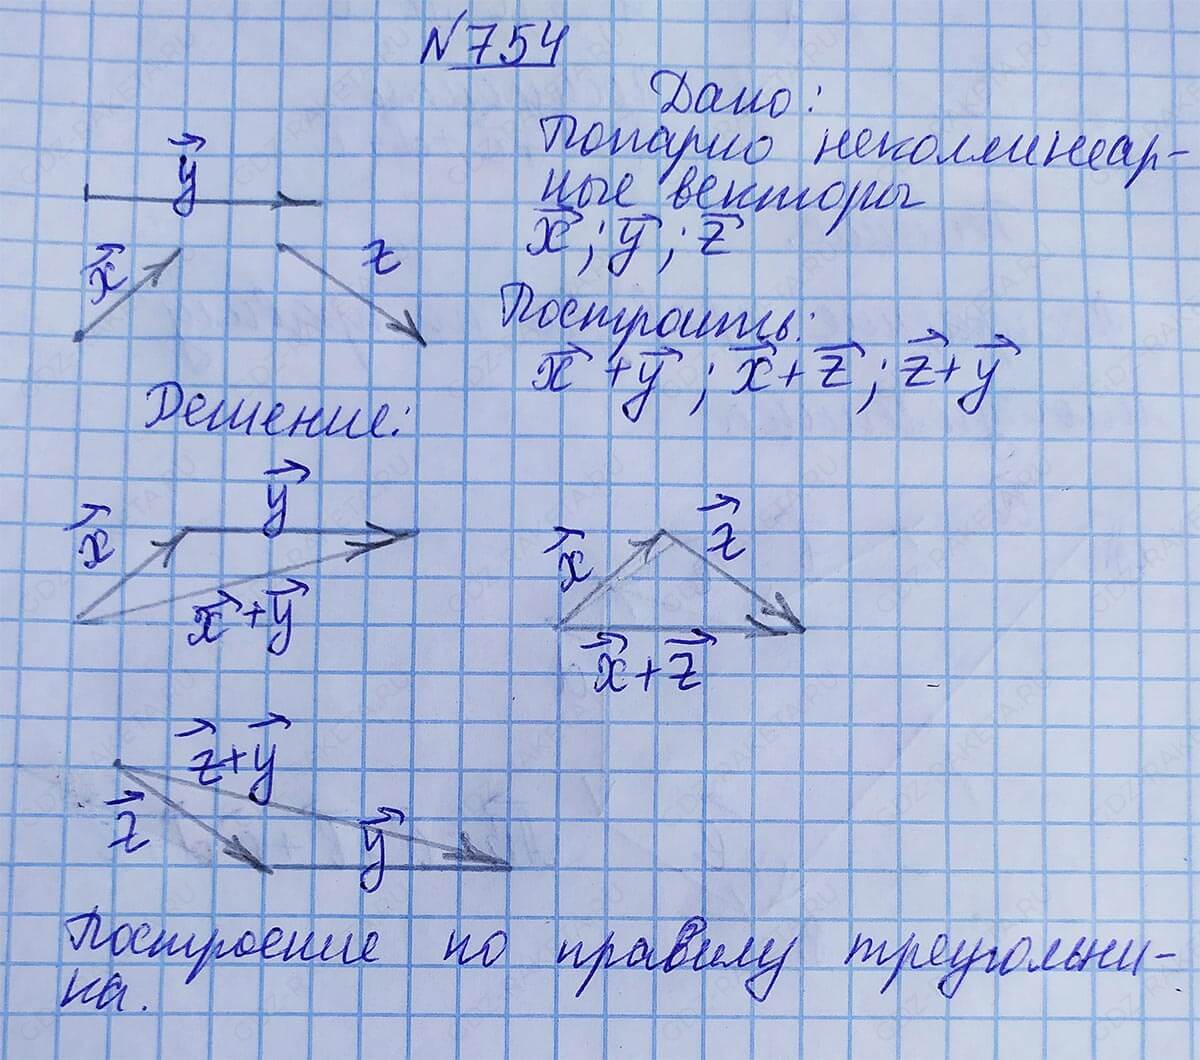 №754
Дано:
Попарно неколлинеар-
ные векторы
x⃗; y⃗; z⃗
y⃗
x⃗
z
Построить:
x⃗+y⃗; x⃗+z⃗; z⃗+y⃗
Решение:
y⃗
x⃗
x⃗+y⃗
x⃗
z⃗
x⃗+z⃗
z⃗+y⃗
z⃗
y⃗
Построение по правилу треугольни-
ка.
GDZ-RAKETA.RU